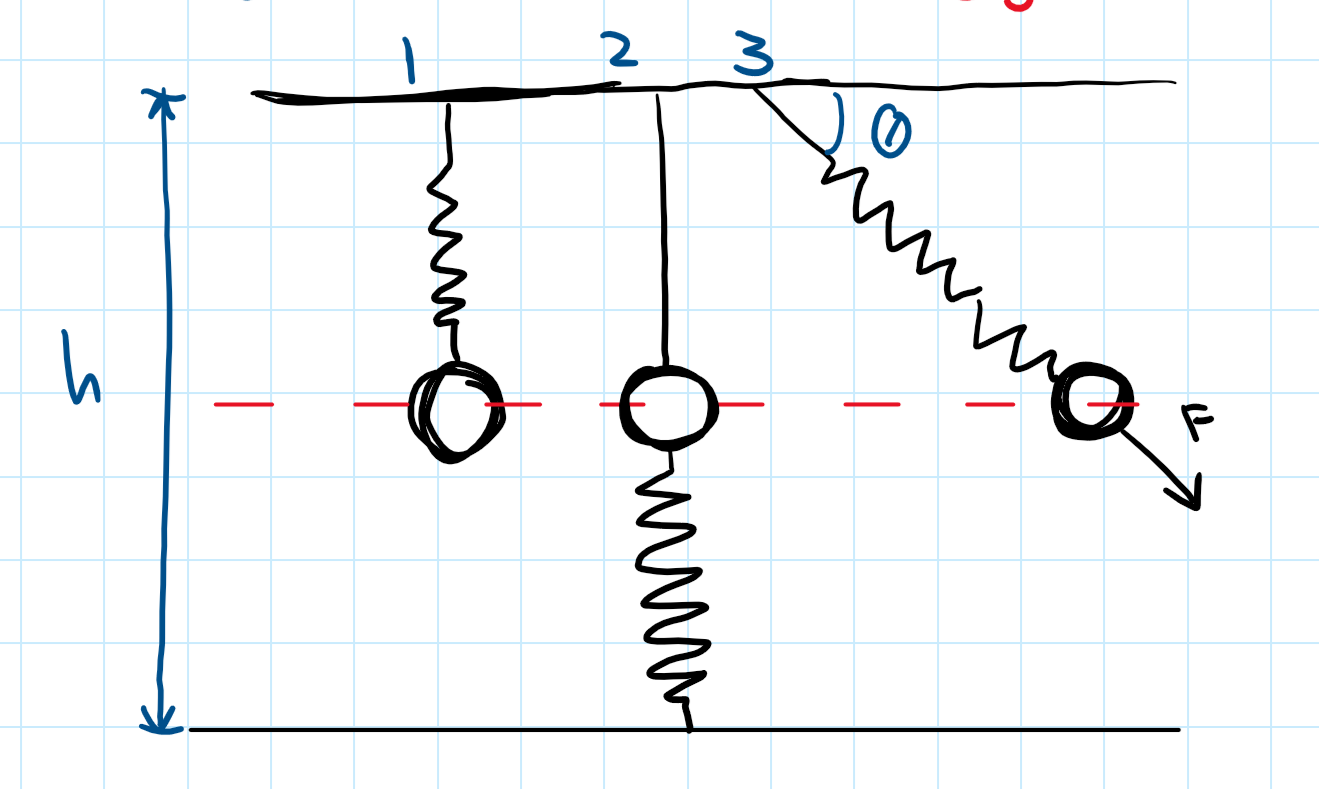 1 2 3
θ
h
F